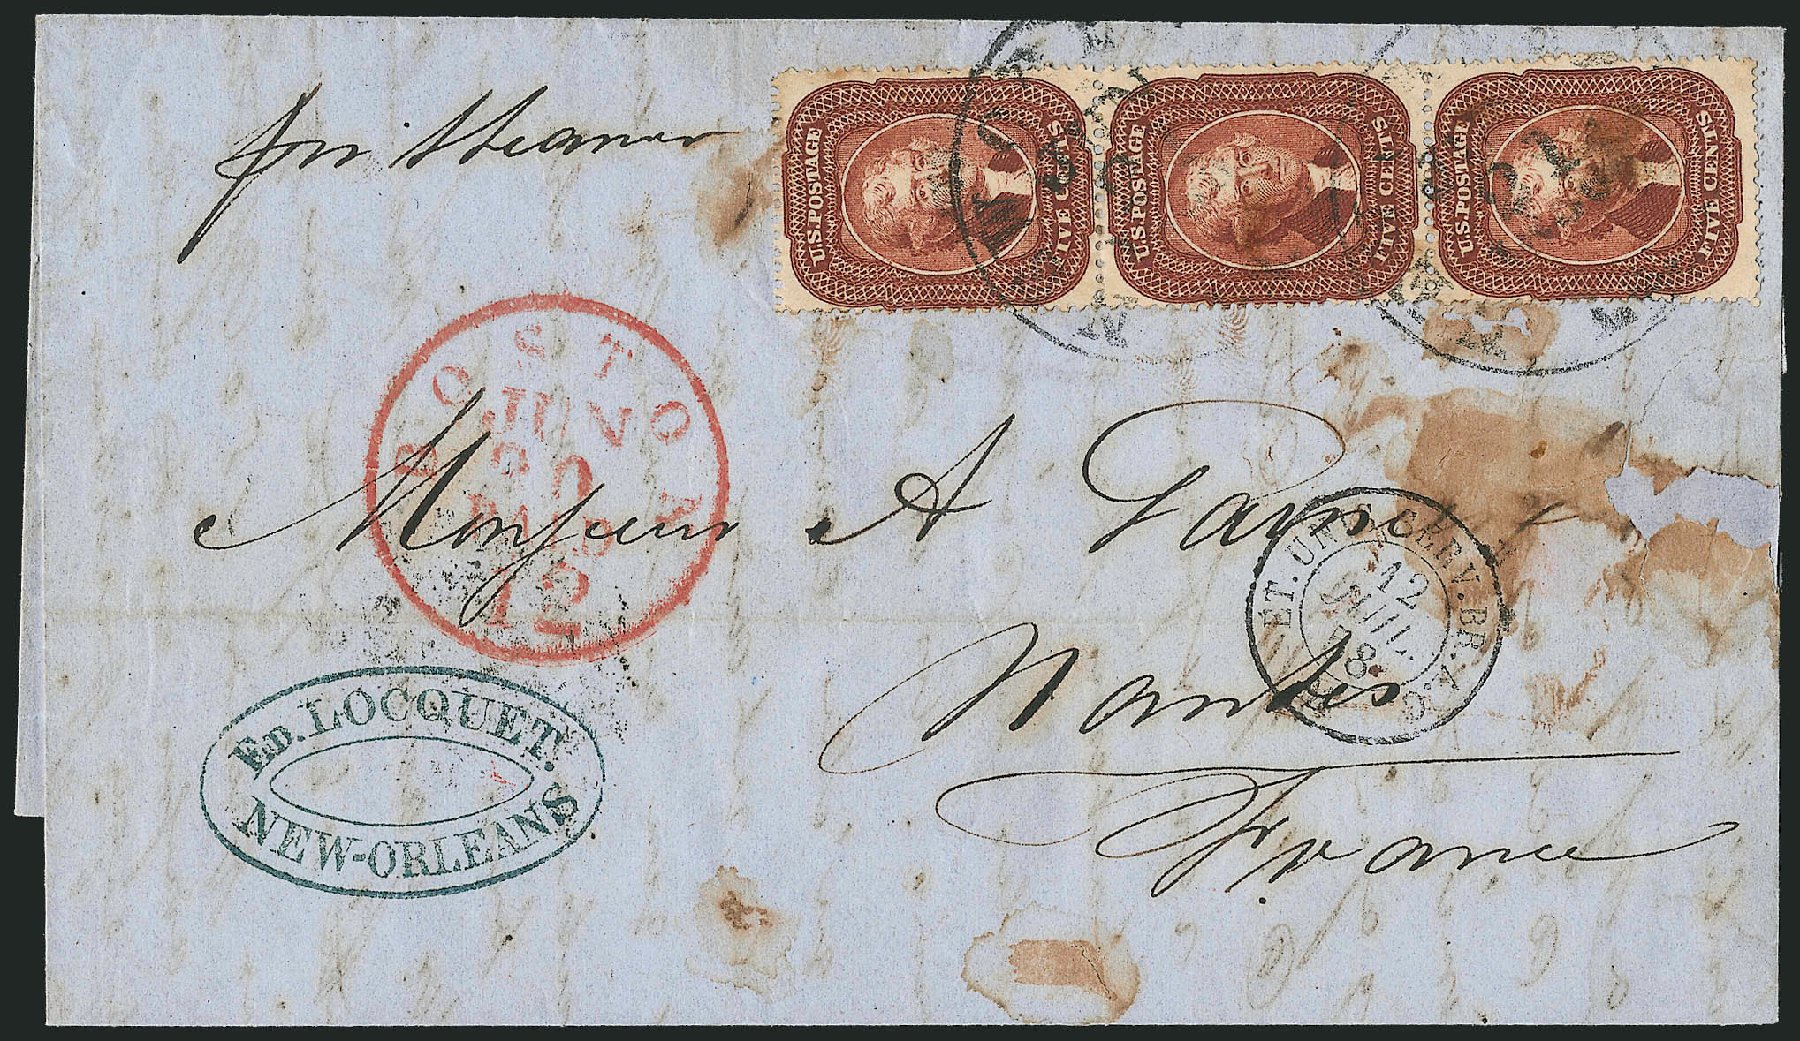 per Steamer
U.S. POSTAGE
FIVE CENTS
U.S. POSTAGE
FIVE CENTS
U.S. POSTAGE
FIVE CENTS
BOSTON
JUN
20
PAID
12
Monsieur A
Nantes
France
ET. UNIS SERV. BR. A.C.
12
JUIL.
ED. LOCQUET.
NEW-ORLEANS